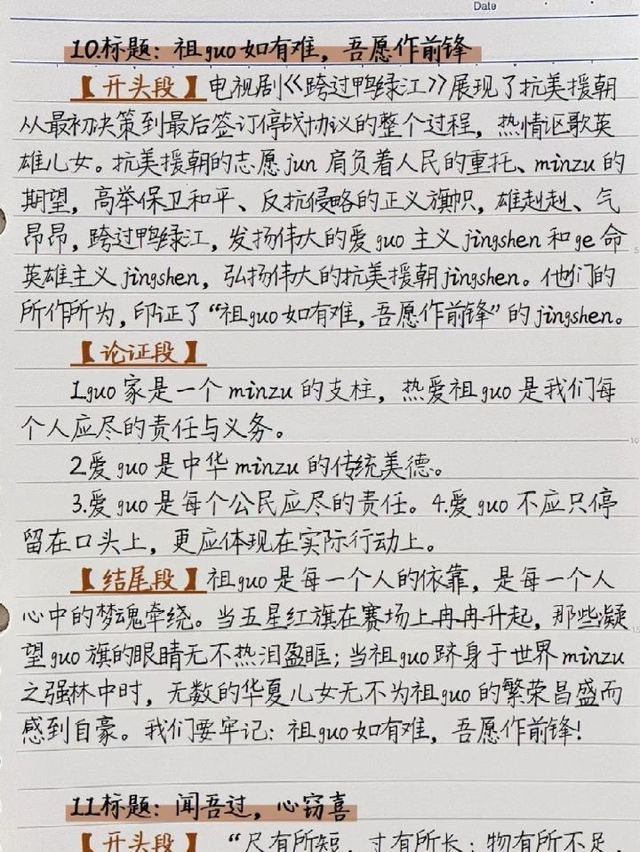 Date
10.标题：祖guo如有难，吾愿作前锋
【开头段】电视剧《跨过鸭绿江》展现了抗美援朝
从最初决策到最后签订停战协议的整个过程，热情讴歌英
雄儿女。抗美援朝的志愿jun肩负着人民的重托、minzu的
期望，高举保卫和平、反抗侵略的正义旗帜，雄赳赳、气
昂昂，跨过鸭绿江，发扬伟大的爱guo主义jingshen和ge命
英雄主义jingshen，弘扬伟大的抗美援朝jingshen。他们的
所作所为，印证了“祖guo如有难，吾愿作前锋”的jingshen。
【论证段】
1.guo家是一个minzu的支柱，热爱祖guo是我们每
个人应尽的责任与义务。
2.爱guo是中华minzu的传统美德。
3.爱guo是每个公民应尽的责任。4.爱guo不应只停
留在口头上，更应体现在实际行动上。
【结尾段】祖guo是每一个人的依靠，是每一个人
心中的梦魂牵绕。当五星红旗在赛场上冉冉升起，那些凝
望guo旗的眼睛无不热泪盈眶；当祖guo跻身于世界minzu
之强林中时，无数的华夏儿女无不为祖guo的繁荣昌盛而
感到自豪。我们要牢记：祖guo如有难，吾愿作前锋！
11.标题：闻吾过，心窃喜
【开头段】“尺有所短，寸有所长；物有所不足，